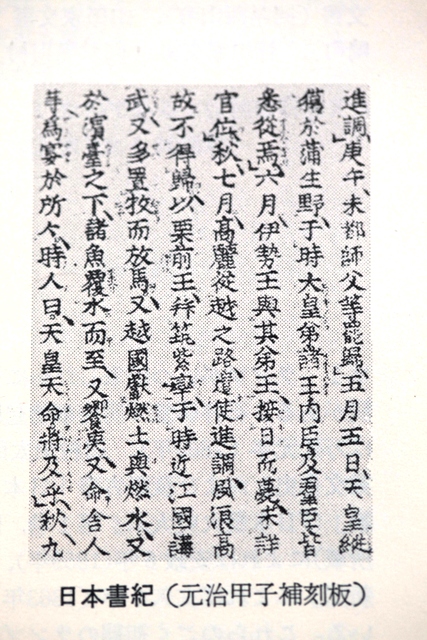 進調庚午未都師父等罷歸五月五日天皇縱
獵於蒲生野于時大皇弟諸王内臣及羣臣皆
悉從焉六月伊勢王與其弟王接日而薨未詳
官位秋七月高麗從越之路遣使進調風浪高
故不得歸以栗前王拜筑紫率于時近江國講
武又多置牧而放馬又越國獻燃土與燃水又
於濱臺之下諸魚覆水而至又饗夷又命舍人
等爲宴於所々時人曰天皇天命將及乎秋九
日本書紀（元治甲子補刻板）